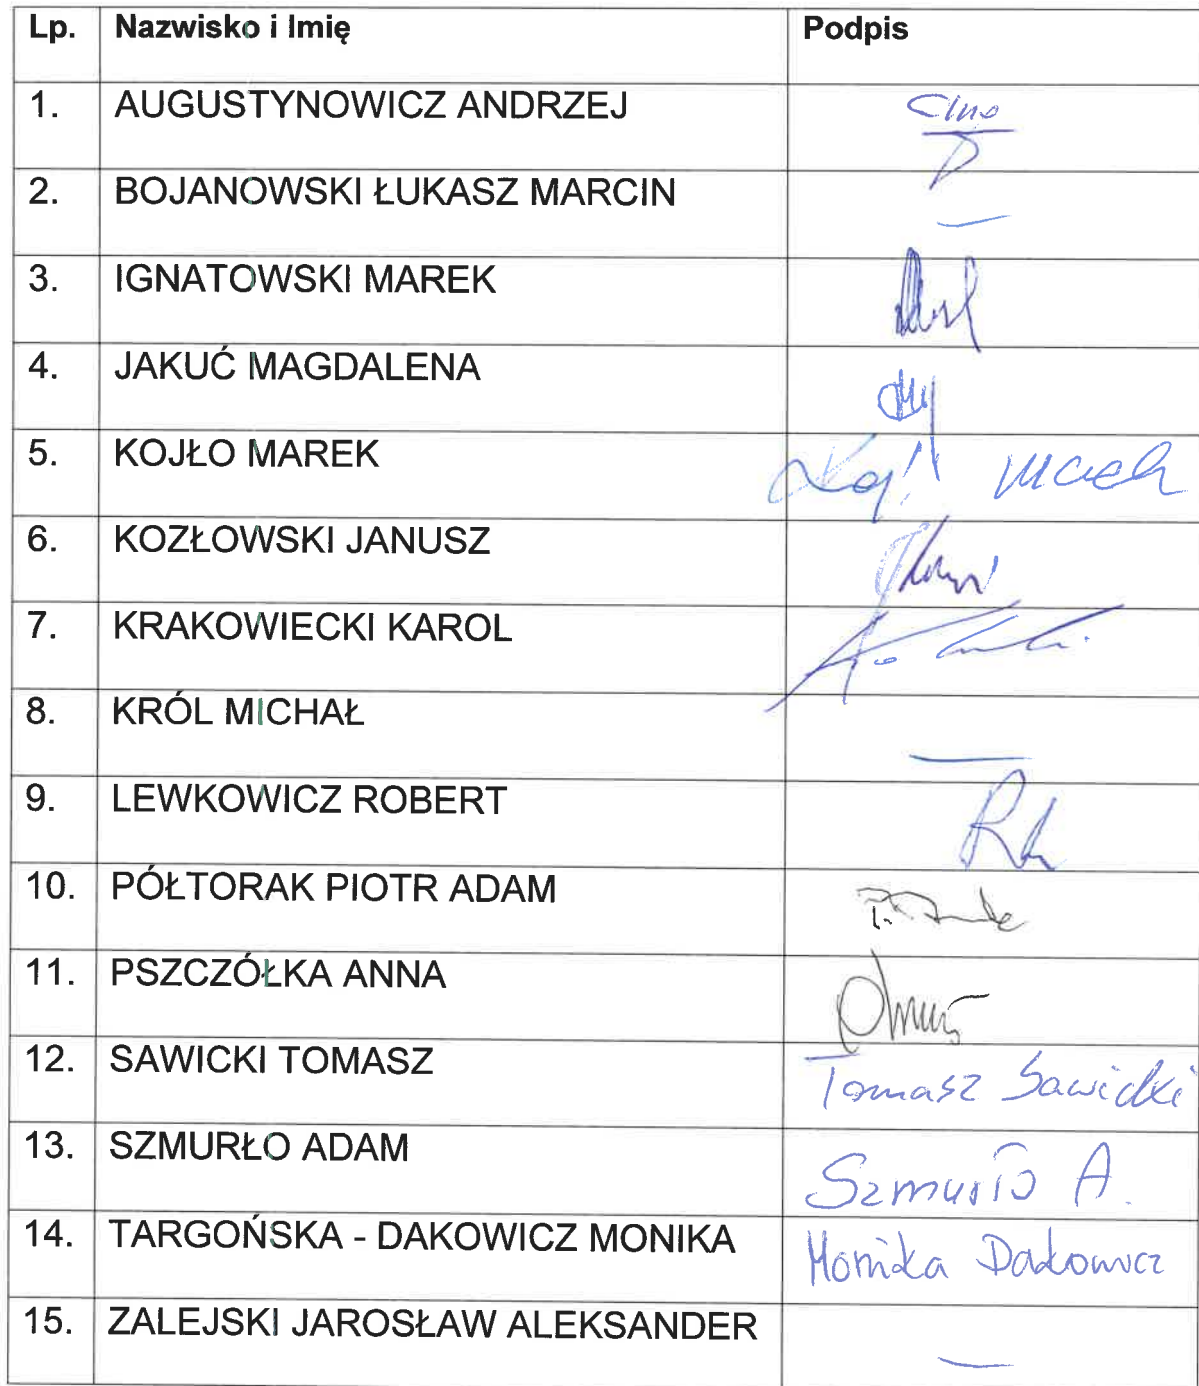 Lp. Nazwisko i Imię Podpis
1. AUGUSTYNOWICZ ANDRZEJ
2. BOJANOWSKI ŁUKASZ MARCIN —
3. IGNATOWSKI MAREK
4. JAKUĆ MAGDALENA
5. KOJŁO MAREK
6. KOZŁOWSKI JANUSZ
7. KRAKOWIECKI KAROL
8. KRÓL MICHAŁ —
9. LEWKOWICZ ROBERT
10. PÓŁTORAK PIOTR ADAM
11. PSZCZÓŁKA ANNA
12. SAWICKI TOMASZ Tomasz Sawicki
13. SZMURŁO ADAM Szmurło A.
14. TARGOŃSKA - DAKOWICZ MONIKA Monika Dakowicz
15. ZALEJSKI JAROSŁAW ALEKSANDER —